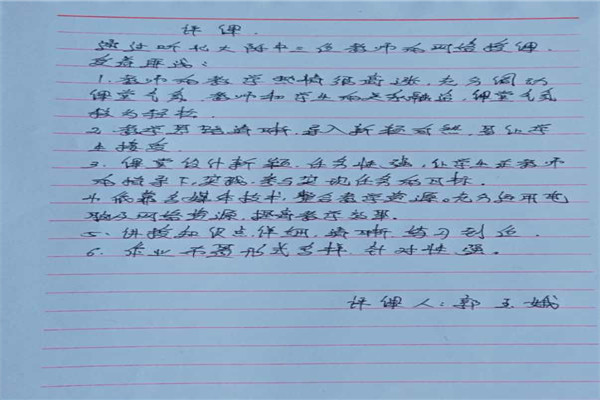 评课
通过听北大附中二位教师的网络授课,
1. 教师的教学热情很高涨,充分调动
课堂气氛,教师和学生的关系融洽,课堂气氛
较为轻松。
2. 教学思路清晰,导入新颖自然,易让学
生接受。
3. 课堂设计新颖,任务性强,让学生在教师
的指导下,实践,参与实现任务的目标。
4. 依靠多媒体技术,整合教学资源。充分运用电
脑及网络资源,提高教学效果。
5. 讲授知识点详细,清晰 练习到位.
6. 作业布置形式多样,针对性强。
评课人:郭玉娥